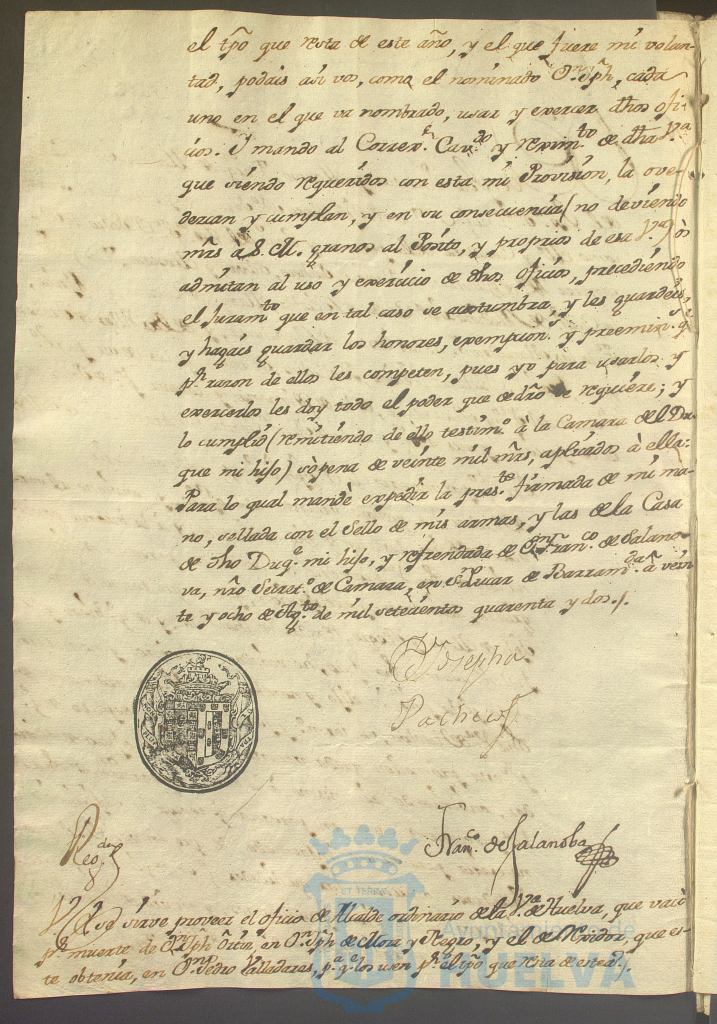 el tpo que resta de este año, y el que fuere mi volun-
tad, podais asi vos, como el nominado Dn. Jph, cada
uno en el que va nombrado, usar y exercer dhos ofi-
cios. Y mando al Correxr. Cavdo. y reximto. de dha Va.
que siendo requeridos con esta mi Provission, la ove-
dezcan y cumplan, y en su consecuencia (no deviendo
mrs à S. M. granos al Posito, y propios de esa Va.) òs
admitan al uso y exercicio de dhos oficios, precediendo
el Juramto. que en tal caso se acostumbra, y les guardeis,
y hagais guardar los honores, exempcions. y preemins. q.
pr. razon de ellos les competen, pues yo para usarlos y
exercerlos les doy todo el poder que de dro se requiere; y
lo cumplid (remitiendo de ello testimo. à la Camara del Du-
que mi hijo) sòpena de veinte mil mrs, aplicados à ella:
Para lo qual mandè expedir la preste. firmada de mi ma-
no, sellada con el Sello de mis armas, y las de la Casa
de dho Duqe. mi hijo, y refrendada de Dn. Franco. de Salano-
va, nro Secreto. de Camara, en Sn. Lucar de Barramda. à vein-
te y ocho de Agto. de mil setecientos quarenta y dos.
Josepha
Pacheco
Franco. de Salanoba
V. Exa. se sirve proveer el oficio de Alcalde ordinario de la Va. de Huelva, que vacó
pr. muerte de Dn. Jph Ortiz, en Dn. Jph de Mora y Negro, y el de Rexidor, que es-
te obtenia, en Dn. Pedro Valladares, pa. qe. los usen pr. el tpo que resta de este año.
Ayuntamiento de
HUELVA